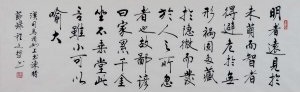 明者遠見於
未萌而智者
避危於無
形禍固多藏
於隱微而發
於人之所忽
者也故鄙諺
曰家累千金
坐不垂堂此
言雖小可以
喻大
漢司馬相如上書諫獵